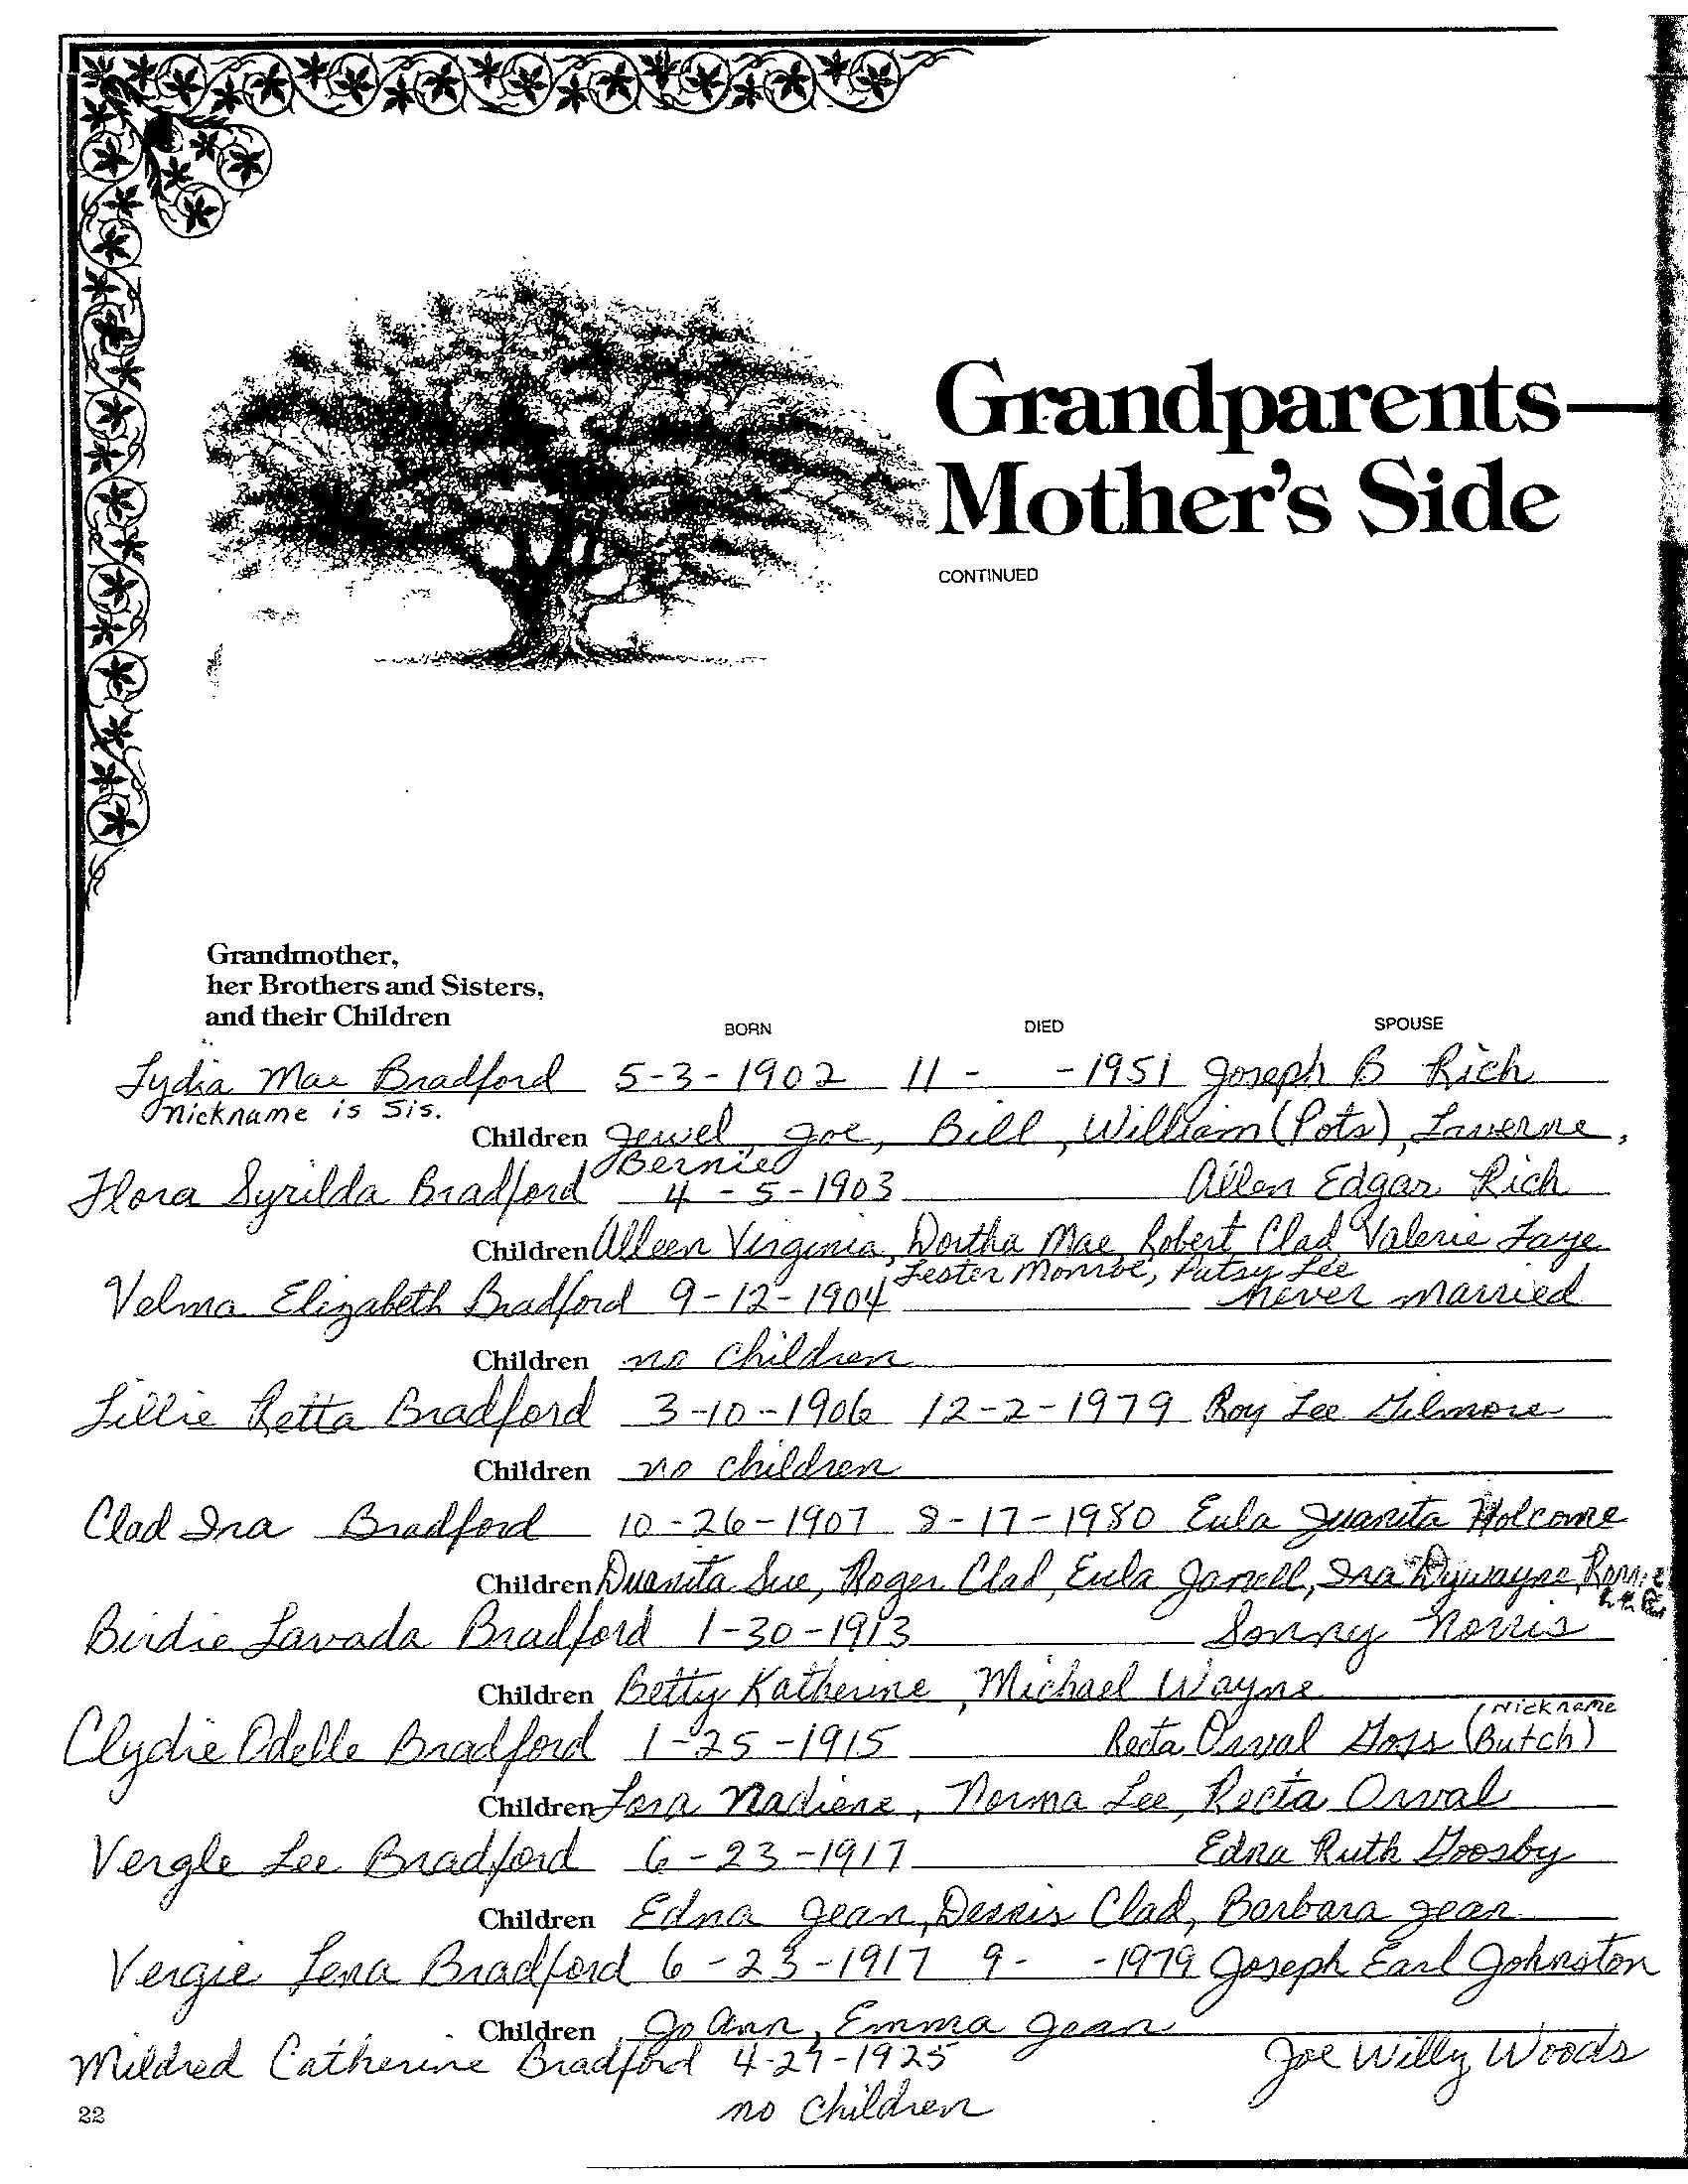 Grandparents—
Mother's Side
CONTINUED
Grandmother,
her Brothers and Sisters,
and their Children
BORN DIED SPOUSE
Lydia Mae Bradford 5-3-1902 11- -1951 Joseph B Rich
Nickname is Sis.
Children Jewel, Joe, Bill, William (Pots), Laverne,
Bernie
Flora Syrilda Bradford 4-5-1903 Allen Edgar Rich
Children Alleen Virginia, Dortha Mae, Robert Clad, Valerie Faye
Lester Monroe, Patsy Lee
Velma Elizabeth Bradford 9-12-1904 never married
Children no children
Lillie Retta Bradford 3-10-1906 12-2-1979 Roy Lee Gilmore
Children no children
Clad Ira Bradford 10-26-1907 8-17-1980 Eula Juanita Holcome
Children Duanita Sue, Roger Clad, Eula Janell, Ira Dywayne, Ronnie
Birdie Lavada Bradford 1-30-1913 Sonny Norris
Children Betty Katherine, Michael Wayne
Nickname
Clydie Odelle Bradford 1-25-1915 Recta Orval Goss (Butch)
Children Lora Nadiene, Norma Lee, Recta Orval
Vergle Lee Bradford 6-23-1917 Edna Ruth Goosby
Children Edna Jean, Dennis Clad, Barbara Jean
Vergie Lena Bradford 6-23-1917 9- -1979 Joseph Earl Johnston
Children Jo Ann, Emma Jean
Mildred Catherine Bradford 4-27-1925 Joe Willy Woods
no children
22